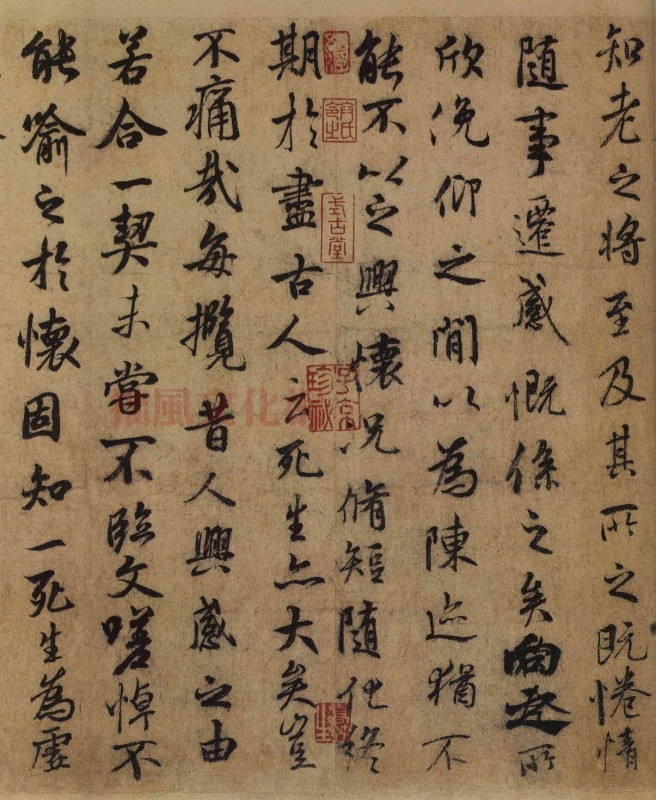 知老之将至及其所之既惓情
随事遷感慨係之矣向之所
欣俛仰之間以為陳迹猶不
能不以之興懷況脩短随化終
期於盡古人云死生亦大矣豈
不痛哉每攬昔人興感之由
若合一契未嘗不臨文嗟悼不
能喻之於懷固知一死生為虛
式古堂
子京珍秘